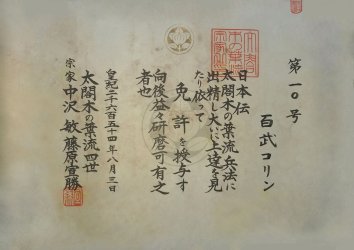 第一〇号
百武コリン
日本伝
太閤木の葉流兵法に
出精し大いに上達を見
たり依って
免許を授与す
向後益々研磨可有之
者也
皇紀二千六百五十四年八月三日
太閤木の葉流四世
宗家 中沢敏藤原宣勝